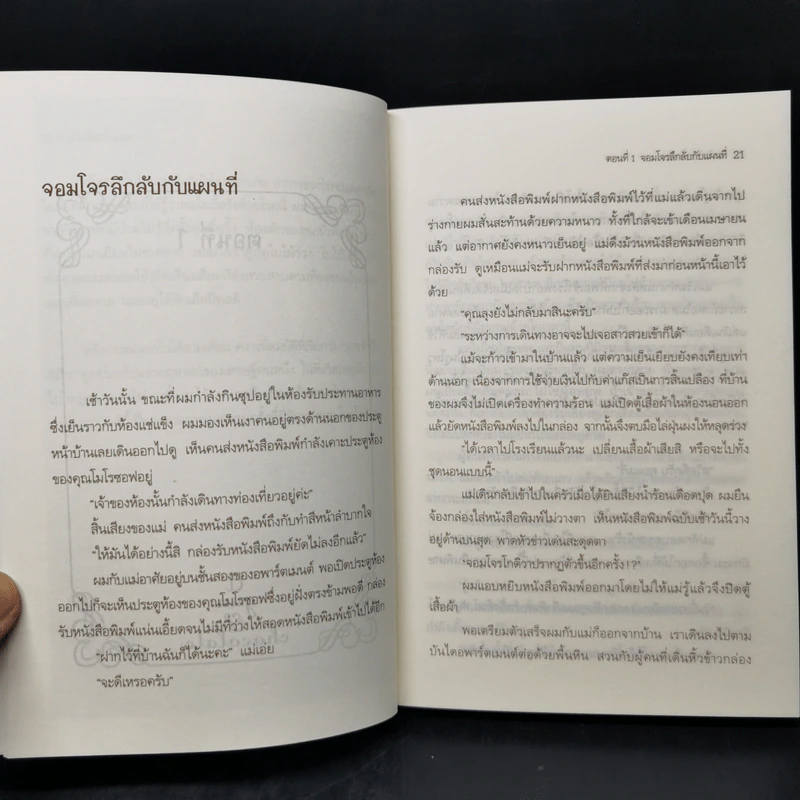 จอมโจรลึกลับกับแผนที่
เช้าวันนั้น ขณะที่ผมกำลังกินซุปอยู่ในห้องรับประทานอาหาร
ซึ่งเย็นราวกับห้องแช่แข็ง ผมมองเห็นเงาคนอยู่ตรงด้านนอกของประตู
หน้าบ้านเลยเดินออกไปดู เห็นคนส่งหนังสือพิมพ์กำลังเคาะประตูห้อง
ของคุณโมโรซอฟอยู่
"เจ้าของห้องนั้นกำลังเดินทางท่องเที่ยวอยู่ค่ะ"
สิ้นเสียงของแม่ คนส่งหนังสือพิมพ์ถึงกับทำสีหน้าลำบากใจ
"ให้มันได้อย่างนี้สิ กล่องรับหนังสือพิมพ์ยัดไม่ลงอีกแล้ว"
ผมกับแม่อาศัยอยู่บนชั้นสองของอพาร์ตเมนต์ พอเปิดประตูห้อง
ออกไปก็จะเห็นประตูห้องของคุณโมโรซอฟซึ่งอยู่ฝั่งตรงข้ามพอดี กล่อง
รับหนังสือพิมพ์แน่นเอี้ยดจนไม่มีที่ว่างให้สอดหนังสือพิมพ์เข้าไปได้อีก
"ฝากไว้ที่บ้านฉันก็ได้นะคะ" แม่เอ่ย
"จะดีเหรอครับ"
ตอนที่ 1 จอมโจรลึกลับกับแผนที่ 21
คนส่งหนังสือพิมพ์ฝากหนังสือพิมพ์ไว้ที่แม่แล้วเดินจากไป
ร่างกายผมสั่นสะท้านด้วยความหนาว ทั้งที่ใกล้จะเข้าเดือนเมษายน
แล้ว แต่อากาศยังคงหนาวเย็นอยู่ แม่ดึงม้วนหนังสือพิมพ์ออกจาก
กล่องรับ ดูเหมือนแม่จะรับฝากหนังสือพิมพ์ที่ส่งมาก่อนหน้านี้เอาไว้
ด้วย
"คุณลุงยังไม่กลับมาสินะครับ"
"ระหว่างการเดินทางอาจจะไปเจอสาวสวยเข้าก็ได้"
แม้จะก้าวเข้ามาในบ้านแล้ว แต่ความเย็นเยียบยังคงเทียบเท่า
ด้านนอก เนื่องจากการใช้จ่ายเงินไปกับค่าแก๊สเป็นการสิ้นเปลือง ที่บ้าน
ของผมจึงไม่เปิดเครื่องทำความร้อน แม่เปิดตู้เสื้อผ้าในห้องนอนออก
แล้วยัดหนังสือพิมพ์ลงไปในกล่อง จากนั้นจึงตบมือไล่ฝุ่นผงให้หลุดร่วง
"ได้เวลาไปโรงเรียนแล้วนะ เปลี่ยนเสื้อผ้าเสียสิ หรือจะไปทั้ง
ชุดนอนแบบนี้"
แม่เดินกลับเข้าไปในครัวเมื่อได้ยินเสียงน้ำร้อนเดือดปุด ผมยืน
จ้องกล่องใส่หนังสือพิมพ์ไม่วางตา เห็นหนังสือพิมพ์ฉบับเช้าวันนี้วาง
อยู่ด้านบนสุด พาดหัวข่าวเด่นสะดุดตา
"จอมโจรโกดิวาปรากฏตัวขึ้นอีกครั้ง!?"
ผมแอบหยิบหนังสือพิมพ์ออกมาโดยไม่ให้แม่รู้แล้วจึงปิดตู้
เสื้อผ้า
พอเตรียมตัวเสร็จผมกับแม่ก็ออกจากบ้าน เราเดินลงไปตาม
บันไดอพาร์ตเมนต์ต่อด้วยพื้นหิน สวนกับผู้คนที่เดินหิ้วข้าวกล่อง